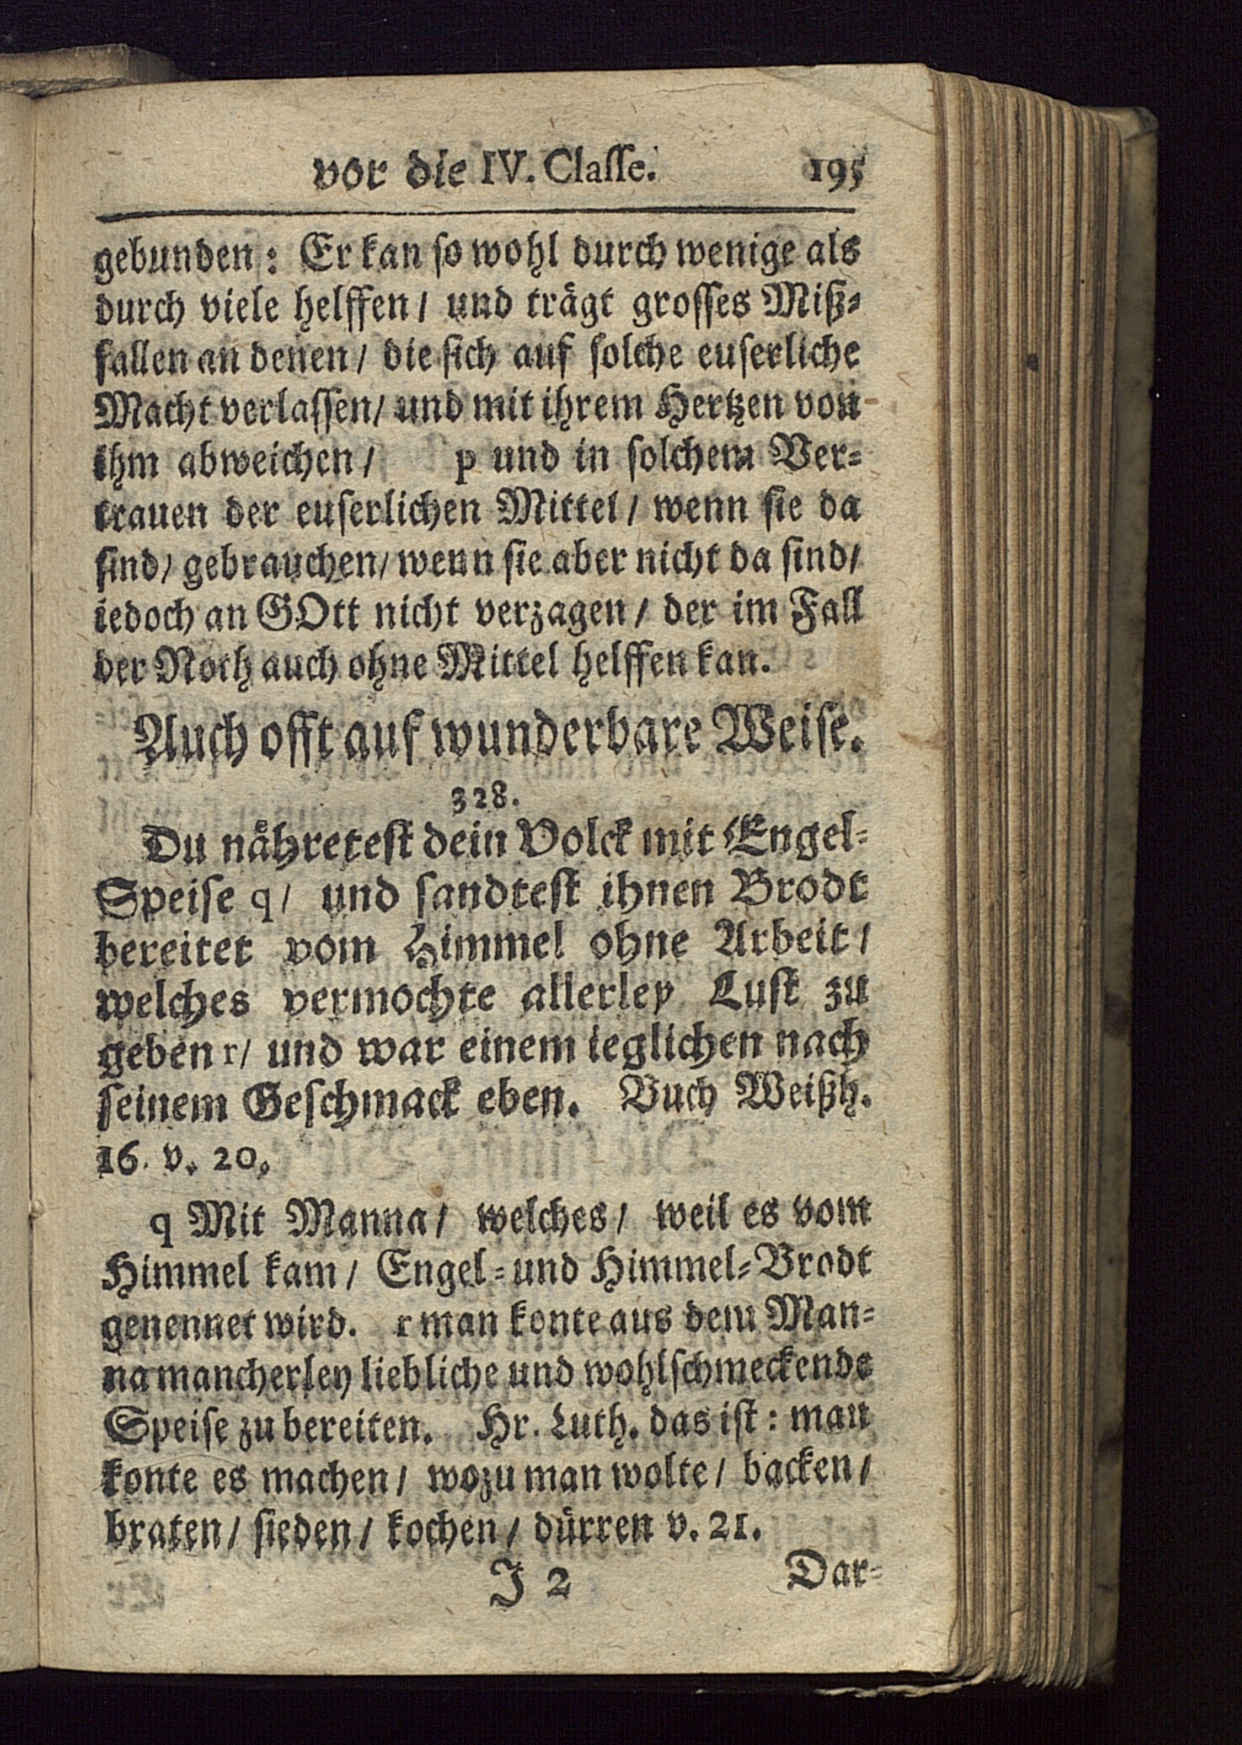 vor die IV. Classe. 195
gebunden: Er kan so wohl durch wenige als
durch viele helffen / und trägt grosses Miß-
fallen an denen / die sich auf solche euserliche
Macht verlassen / und mit ihrem Hertzen von
ihm abweichen / p und in solchem Ver-
trauen der euserlichen Mittel / wenn sie da
sind / gebrauchen / wenn sie aber nicht da sind /
iedoch an GOtt nicht verzagen / der im Fall
der Noth auch ohne Mittel helffen kan.
Auch offt auf wunderbare Weise.
328.
Du nähretest dein Volck mit Engel-
Speise q / und sandtest ihnen Brodt
bereitet vom Himmel ohne Arbeit /
welches vermochte allerley Lust zu
geben r / und war einem ieglichen nach
seinem Geschmack eben. Buch Weißh.
16. v. 20.
q Mit Manna / welches / weil es vom
Himmel kam / Engel- und Himmel-Brodt
genennet wird. r man konte aus dem Man-
na mancherley liebliche und wohlschmeckende
Speise zu bereiten. Hr. Luth. das ist: man
konte es machen / wozu man wolte / backen /
braten / sieden / kochen / dürren v. 21.
J 2 Dar-